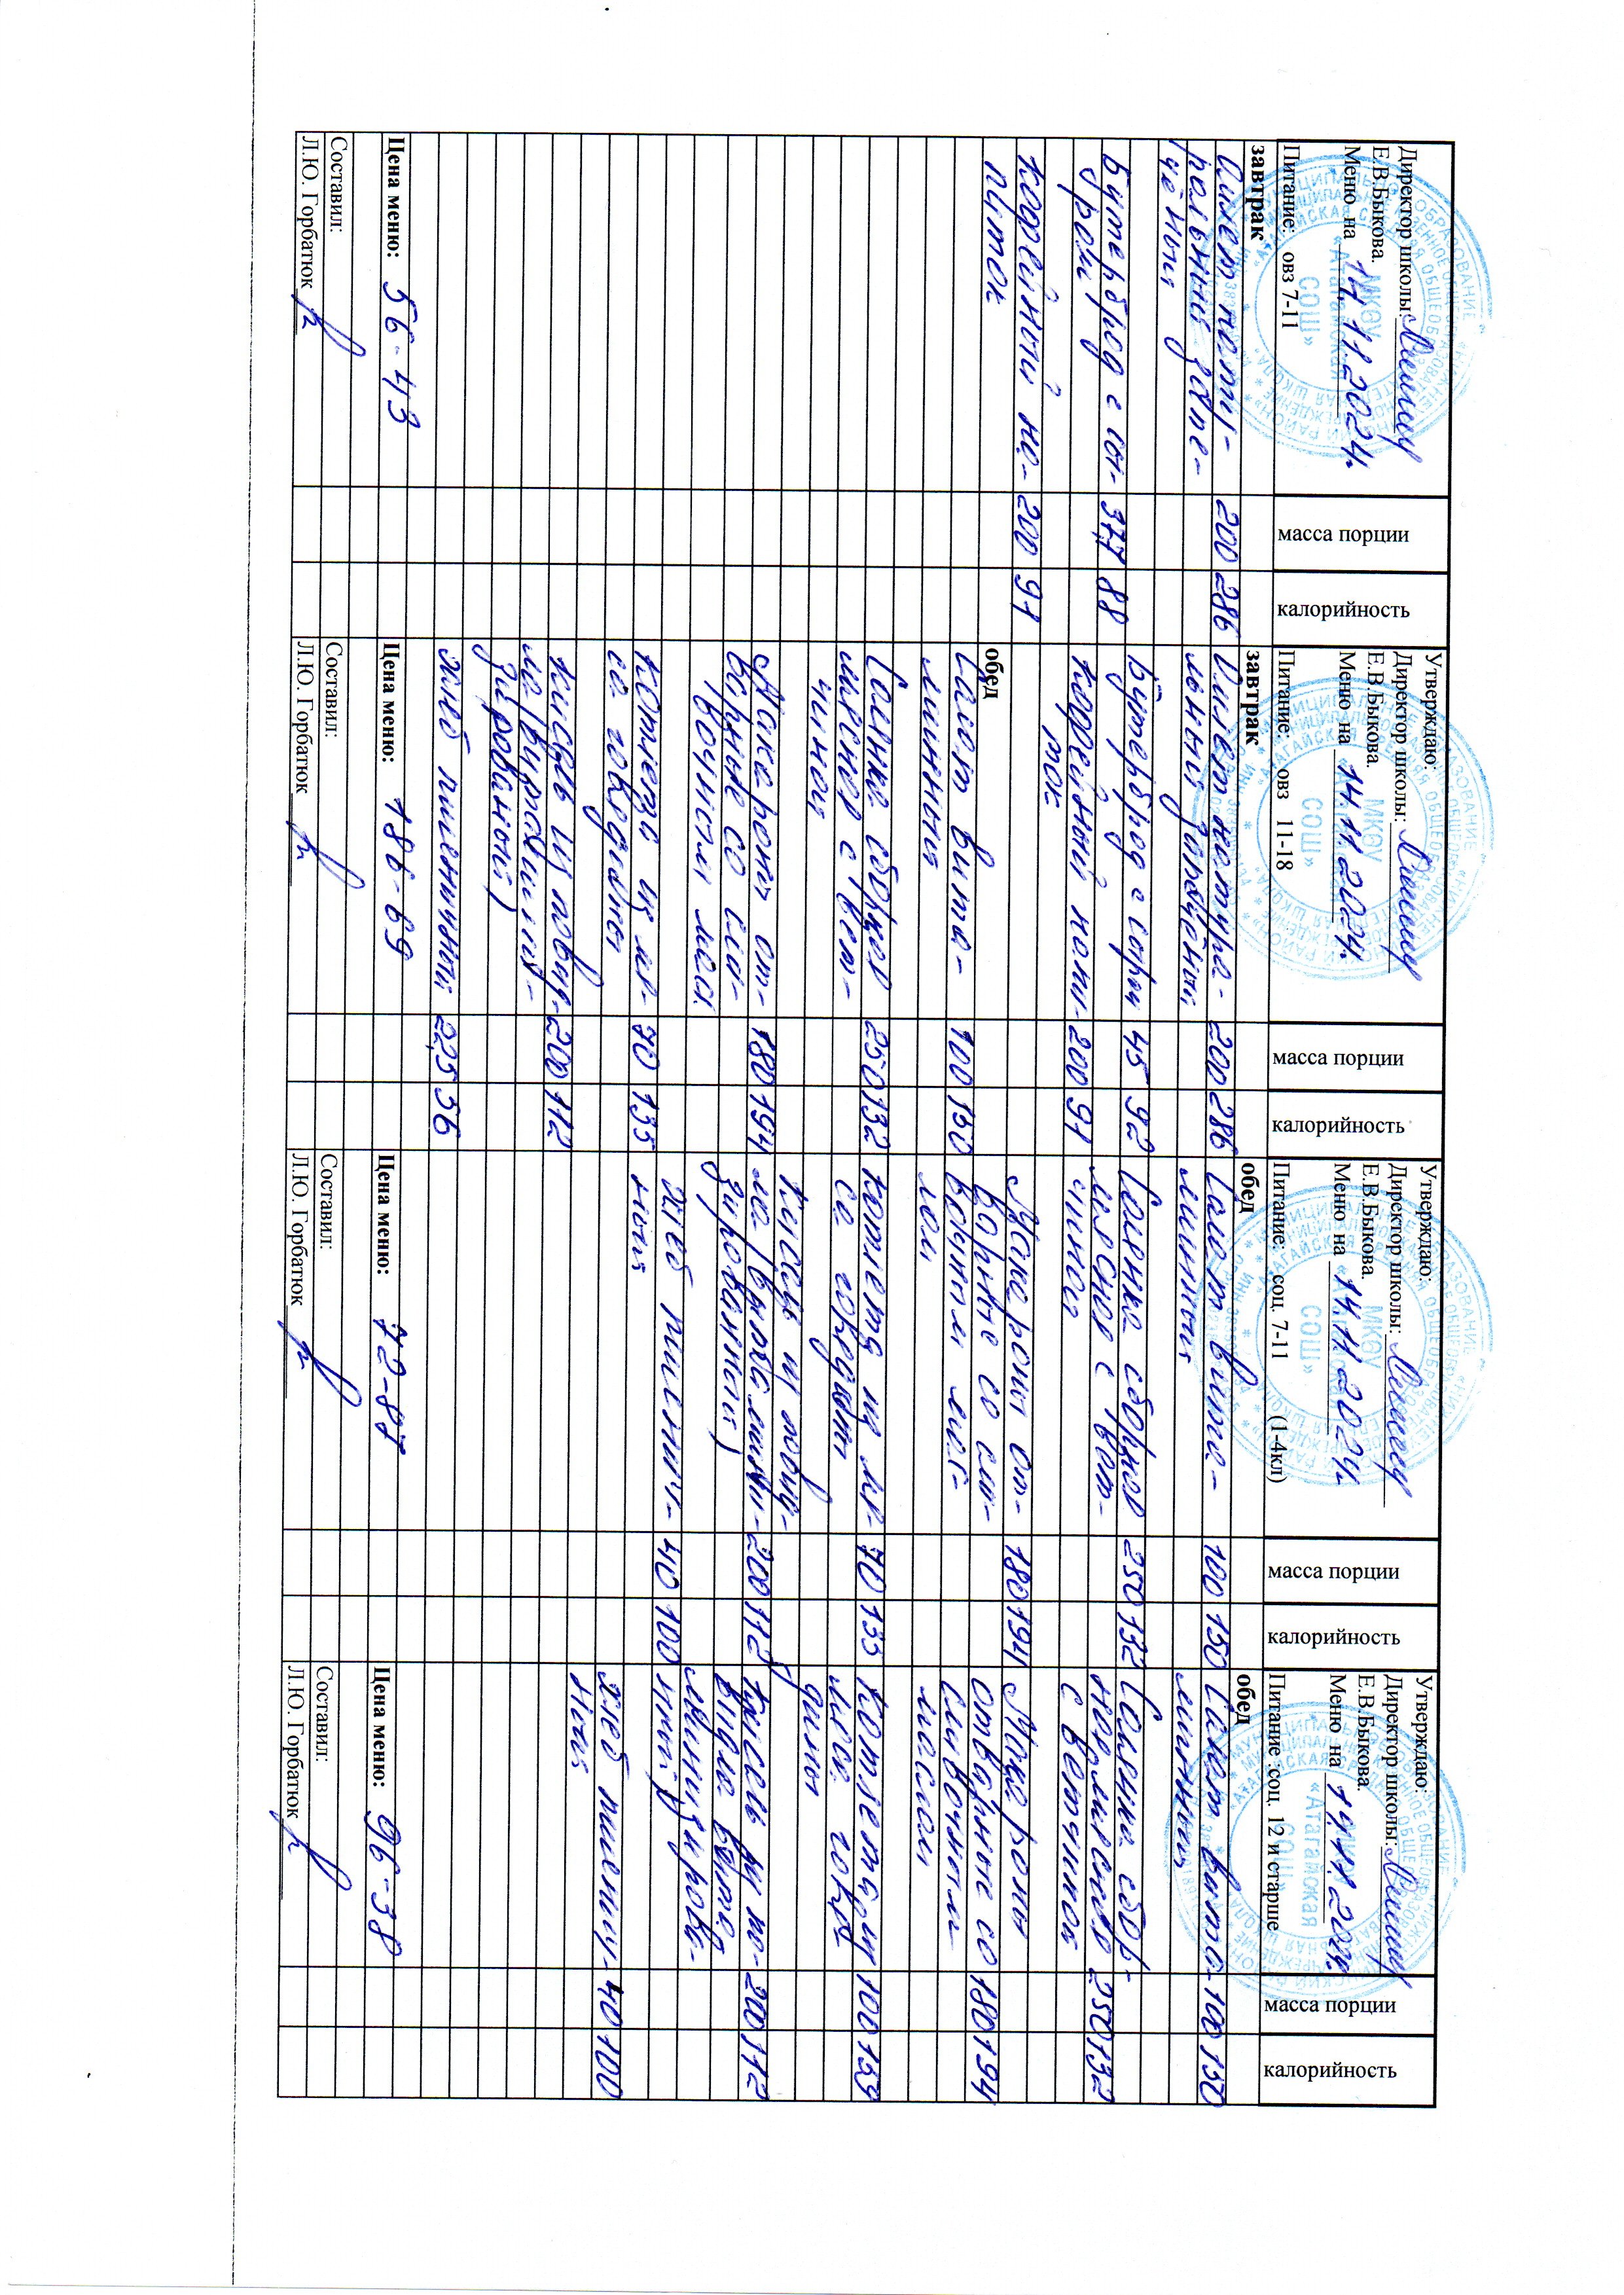 Директор школы:
Е.В.Быкова.
Меню на 14.11.2024г.
Питание: овз 7-11
масса порции
калорийность
завтрак
Омлет нату-
ральный запе-
чённый
200 286
Бутерброд с сы-
ром
37,7 88
Кофейный на-
питок
200 91
Цена меню: 56-43
Составил:
Л.Ю. Горбатюк
Утверждаю:
Директор школы:
Е.В.Быкова.
Меню на 14.11.2024г.
Питание: овз 11-18
масса порции
калорийность
завтрак
Омлет натура-
льный запечённый
200 286
Бутерброд с сыром 45 92
Кофейный напи-
ток
200 91
обед
Салат вита-
минный
100 150
Солянка сборная
мясная с вет-
чиной
250 132
Макароны от-
варные со сли-
вочным масл.
180 194
Котлета из мя-
са говядины
70 135
Кисель из повид-
ла (витамини-
зированный)
200 112
Хлеб пшеничный 22,5 56
Цена меню: 186-69
Составил:
Л.Ю. Горбатюк
Утверждаю:
Директор школы:
Е.В.Быкова.
Меню на 14.11.2024г.
Питание: соц. 7-11 (1-4кл)
масса порции
калорийность
обед
Салат вита-
минный
100 150
Солянка сборная
мясная с вет-
чиной
250 132
Макароны от-
варные со сли-
вочным мас-
лом
180 194
Котлета из мя-
са говядины
70 133
Кисель из повид-
ла (витамини-
зированный)
200 112
Хлеб пшенич-
ный
40 100
Цена меню: 72-87
Составил:
Л.Ю. Горбатюк
Утверждаю:
Директор школы:
Е.В.Быкова.
Меню на 14.11.2024г.
Питание :соц. 12 и старше
масса порции
калорийность
обед
Салат вита-
минный
100 150
Солянка сбор-
ная мясная
с ветчиной
250 132
Макароны
отварные со
сливочным
маслом
180 194
Котлета из
мяса говя-
дины
100 159
Кисель из по-
видла вита
минизирова-
нный)
200 112
Хлеб пшенич-
ный
40 100
Цена меню: 96-38
Составил:
Л.Ю. Горбатюк
МКОУ
«Атагайская
СОШ»